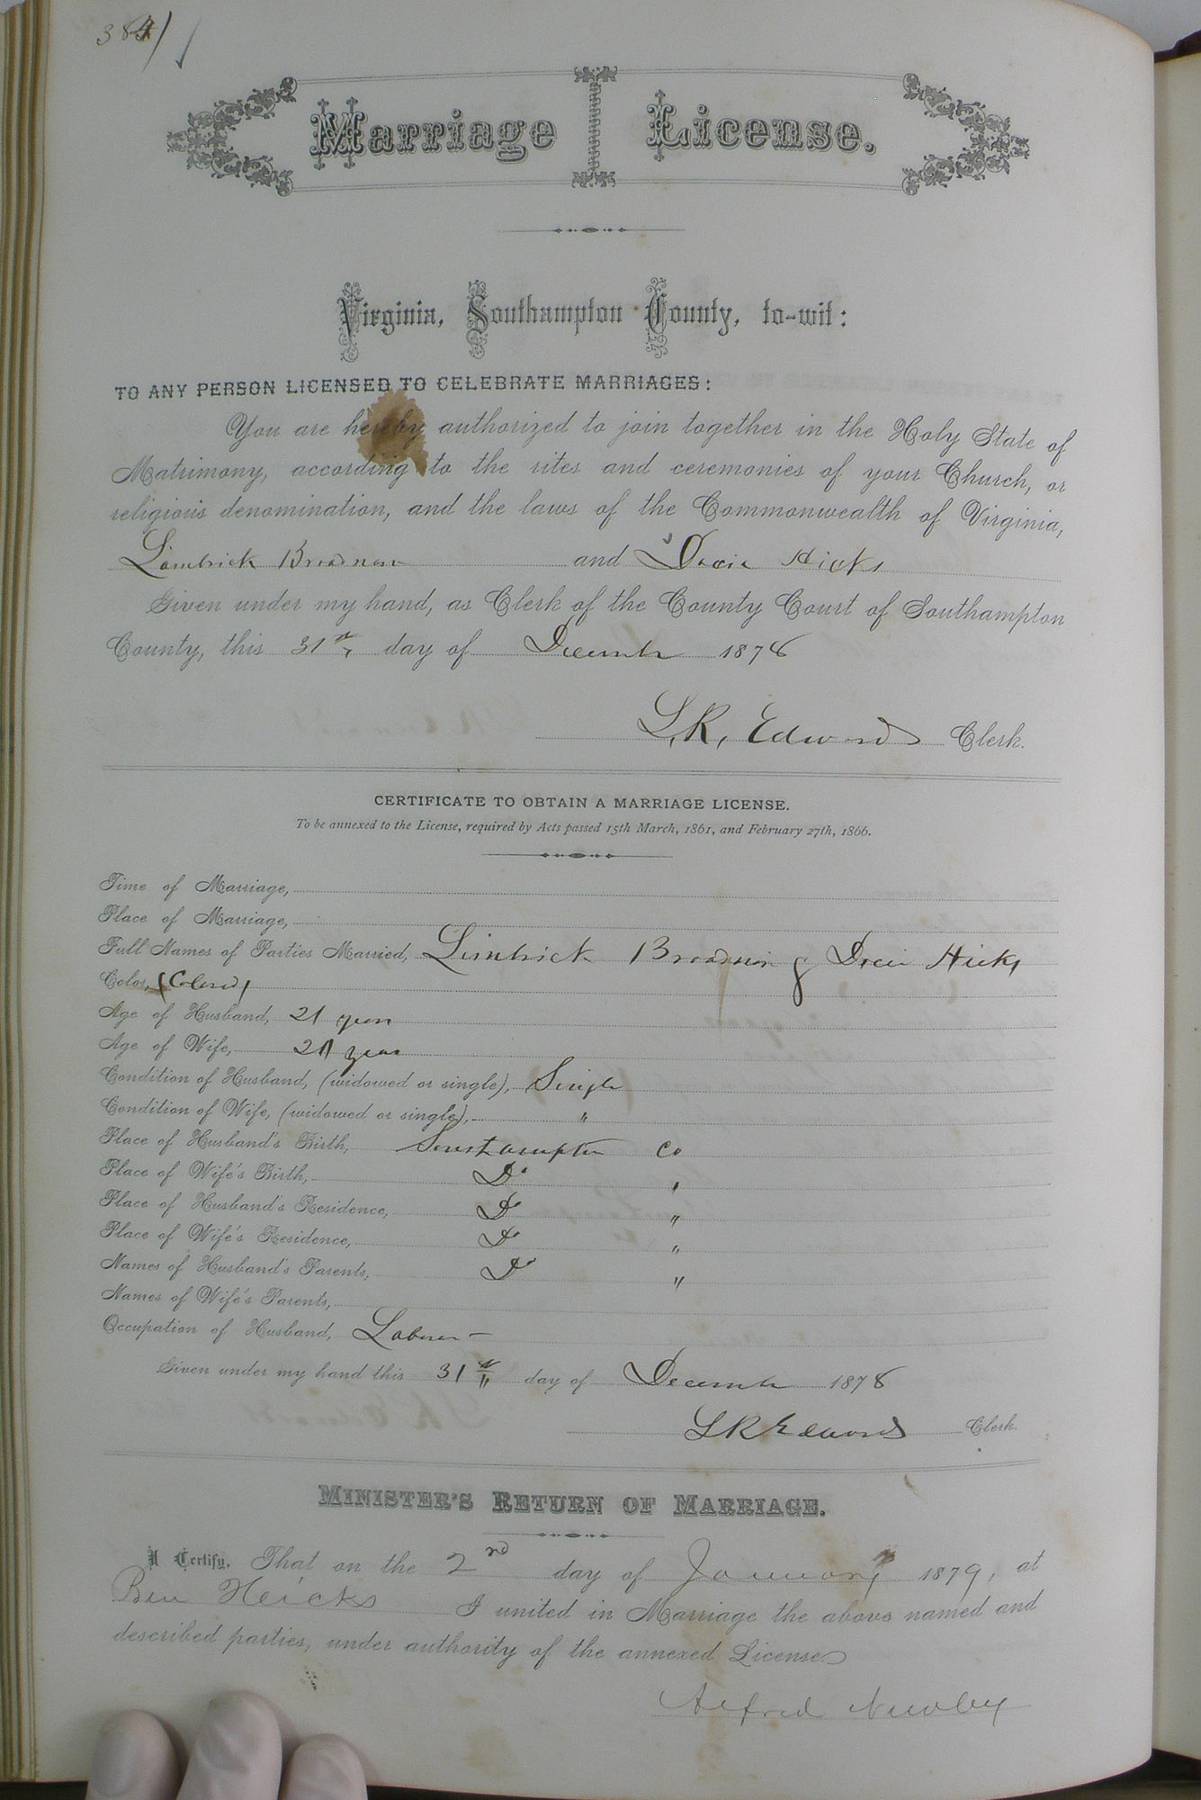 384
Marriage License.
Virginia, Southampton County, to-wit:
TO ANY PERSON LICENSED TO CELEBRATE MARRIAGES:
You are hereby authorized to join together in the Holy State of
Matrimony, according to the rites and ceremonies of your Church, or
religious denomination, and the laws of the Commonwealth of Virginia,
Limbrick Broadnax and Docia Hicks
Given under my hand, as Clerk of the County Court of Southampton
County, this 31st day of December 1878
L. R. Edwards Clerk.
CERTIFICATE TO OBTAIN A MARRIAGE LICENSE.
To be annexed to the License, required by Acts passed 15th March, 1861, and February 27th, 1866.
Time of Marriage,
Place of Marriage,
Full Names of Parties Married, Limbrick Broadnax & Hicks
Color, (Colored)
Age of Husband, 21 years
Age of Wife, 21 years
Condition of Husband, (widowed or single), Single
Condition of Wife, (widowed or single), "
Place of Husband's Birth, Southampton Co
Place of Wife's Birth, Do "
Place of Husband's Residence, Do "
Place of Wife's Residence, Do "
Names of Husband's Parents, Do "
Names of Wife's Parents,
Occupation of Husband, Laborer
Given under my hand this 31st day of December 1878
L R Edwards Clerk.
MINISTER'S RETURN OF MARRIAGE.
I Certify, That on the 2nd day of January 1879, at
Ben Heicks I united in Marriage the above named and
described parties, under authority of the annexed License.
Alfred Newby